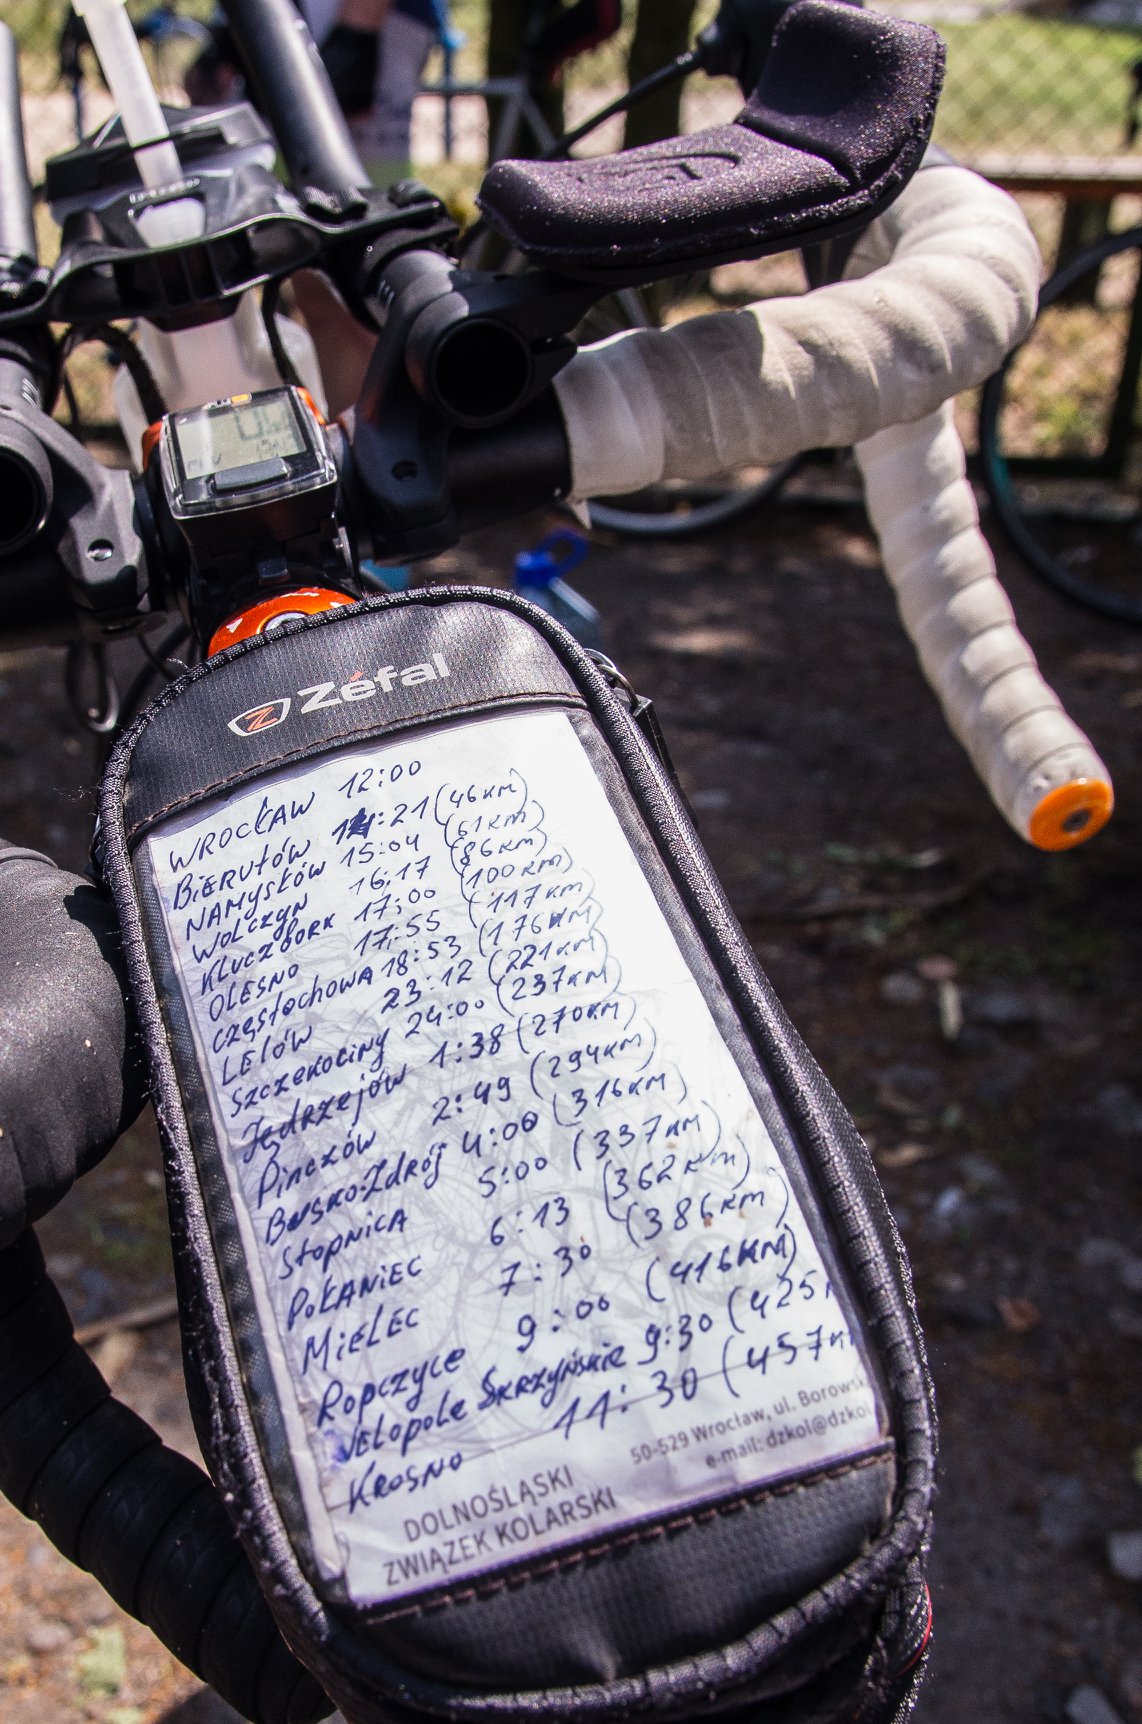 Zéfal
WROCŁAW 12:00
BiERUtÓW 14:21 (46KM)
NAMYSŁÓW 15:04 (61KM)
WOŁCZYN 16:17 (86KM)
KLUCZBORK 17:00 (100KM)
OLESNO 17:55 (117KM)
CZĘStOchOWA 18:53 (176KM)
LELÓW 23:12 (221KM)
SZCZEKOCiNY 24:00 (237KM)
JĘdRZEjÓW 1:38 (270KM)
PiNCZÓW 2:49 (294KM)
BUSKO-ZdRÓj 4:00 (316KM)
StOPNiCA 5:00 (337KM)
POŁANiEC 6:13 (362KM)
MiELEC 7:30 (386KM)
ROPCZYCE 9:00 (416KM)
WiELOPOLE SKRZYŃSKiE 9:30 (425
KROSNO 11:30 (457K
50-529 Wrocław, ul. Borowsk
e-mail: dzkol@dzkol
DOLNOŚLĄSKI
ZWIĄZEK KOLARSKI